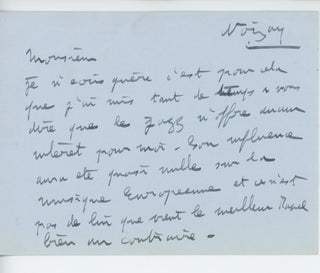 Noizay
Monsieur
Je n'écris guère c'est pour cela
que j'ai mis tant de temps à vous
dire que le Jazz n'offre aucun
intérêt pour moi. Son influence
aura été quasi nulle sur la
musique Européenne et ce n'est
pas de lui que vient le meilleur Ravel
bien au contraire -